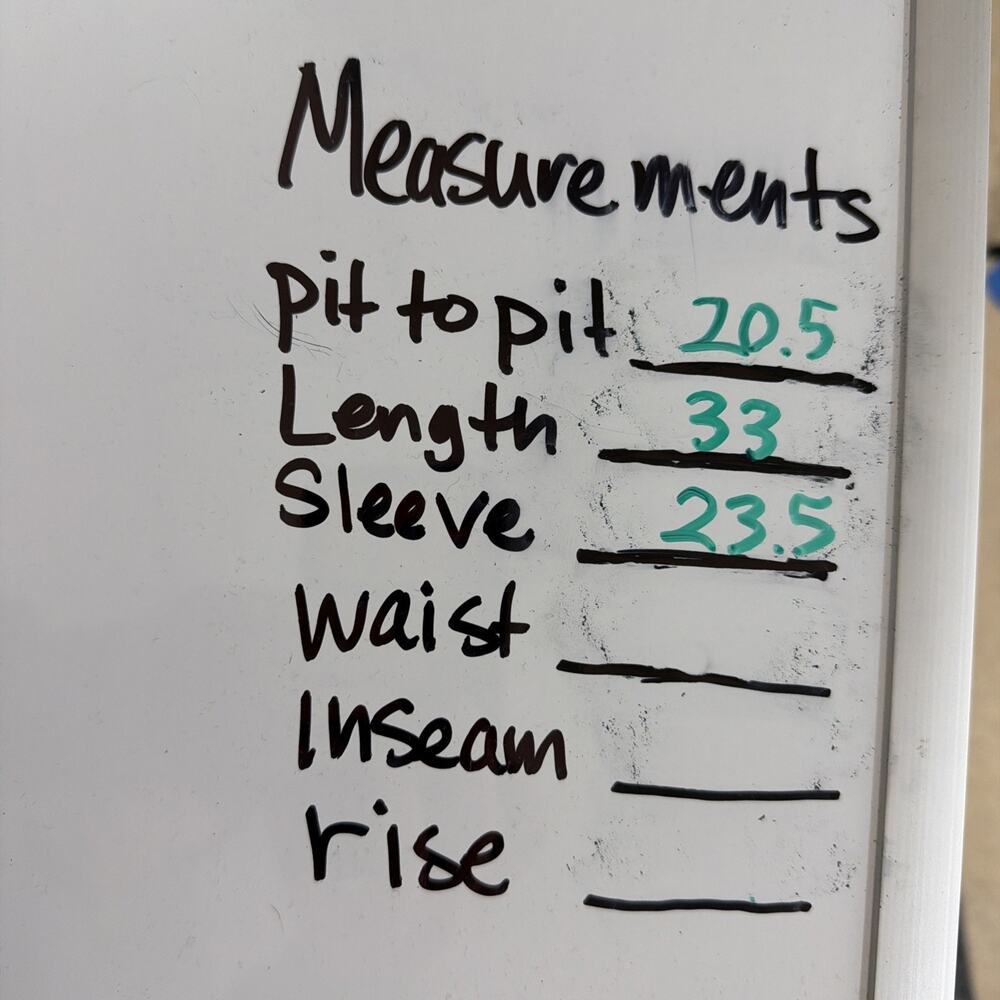 Measurements
pit to pit 20.5
Length 33
Sleeve 23.5
waist
Inseam
rise